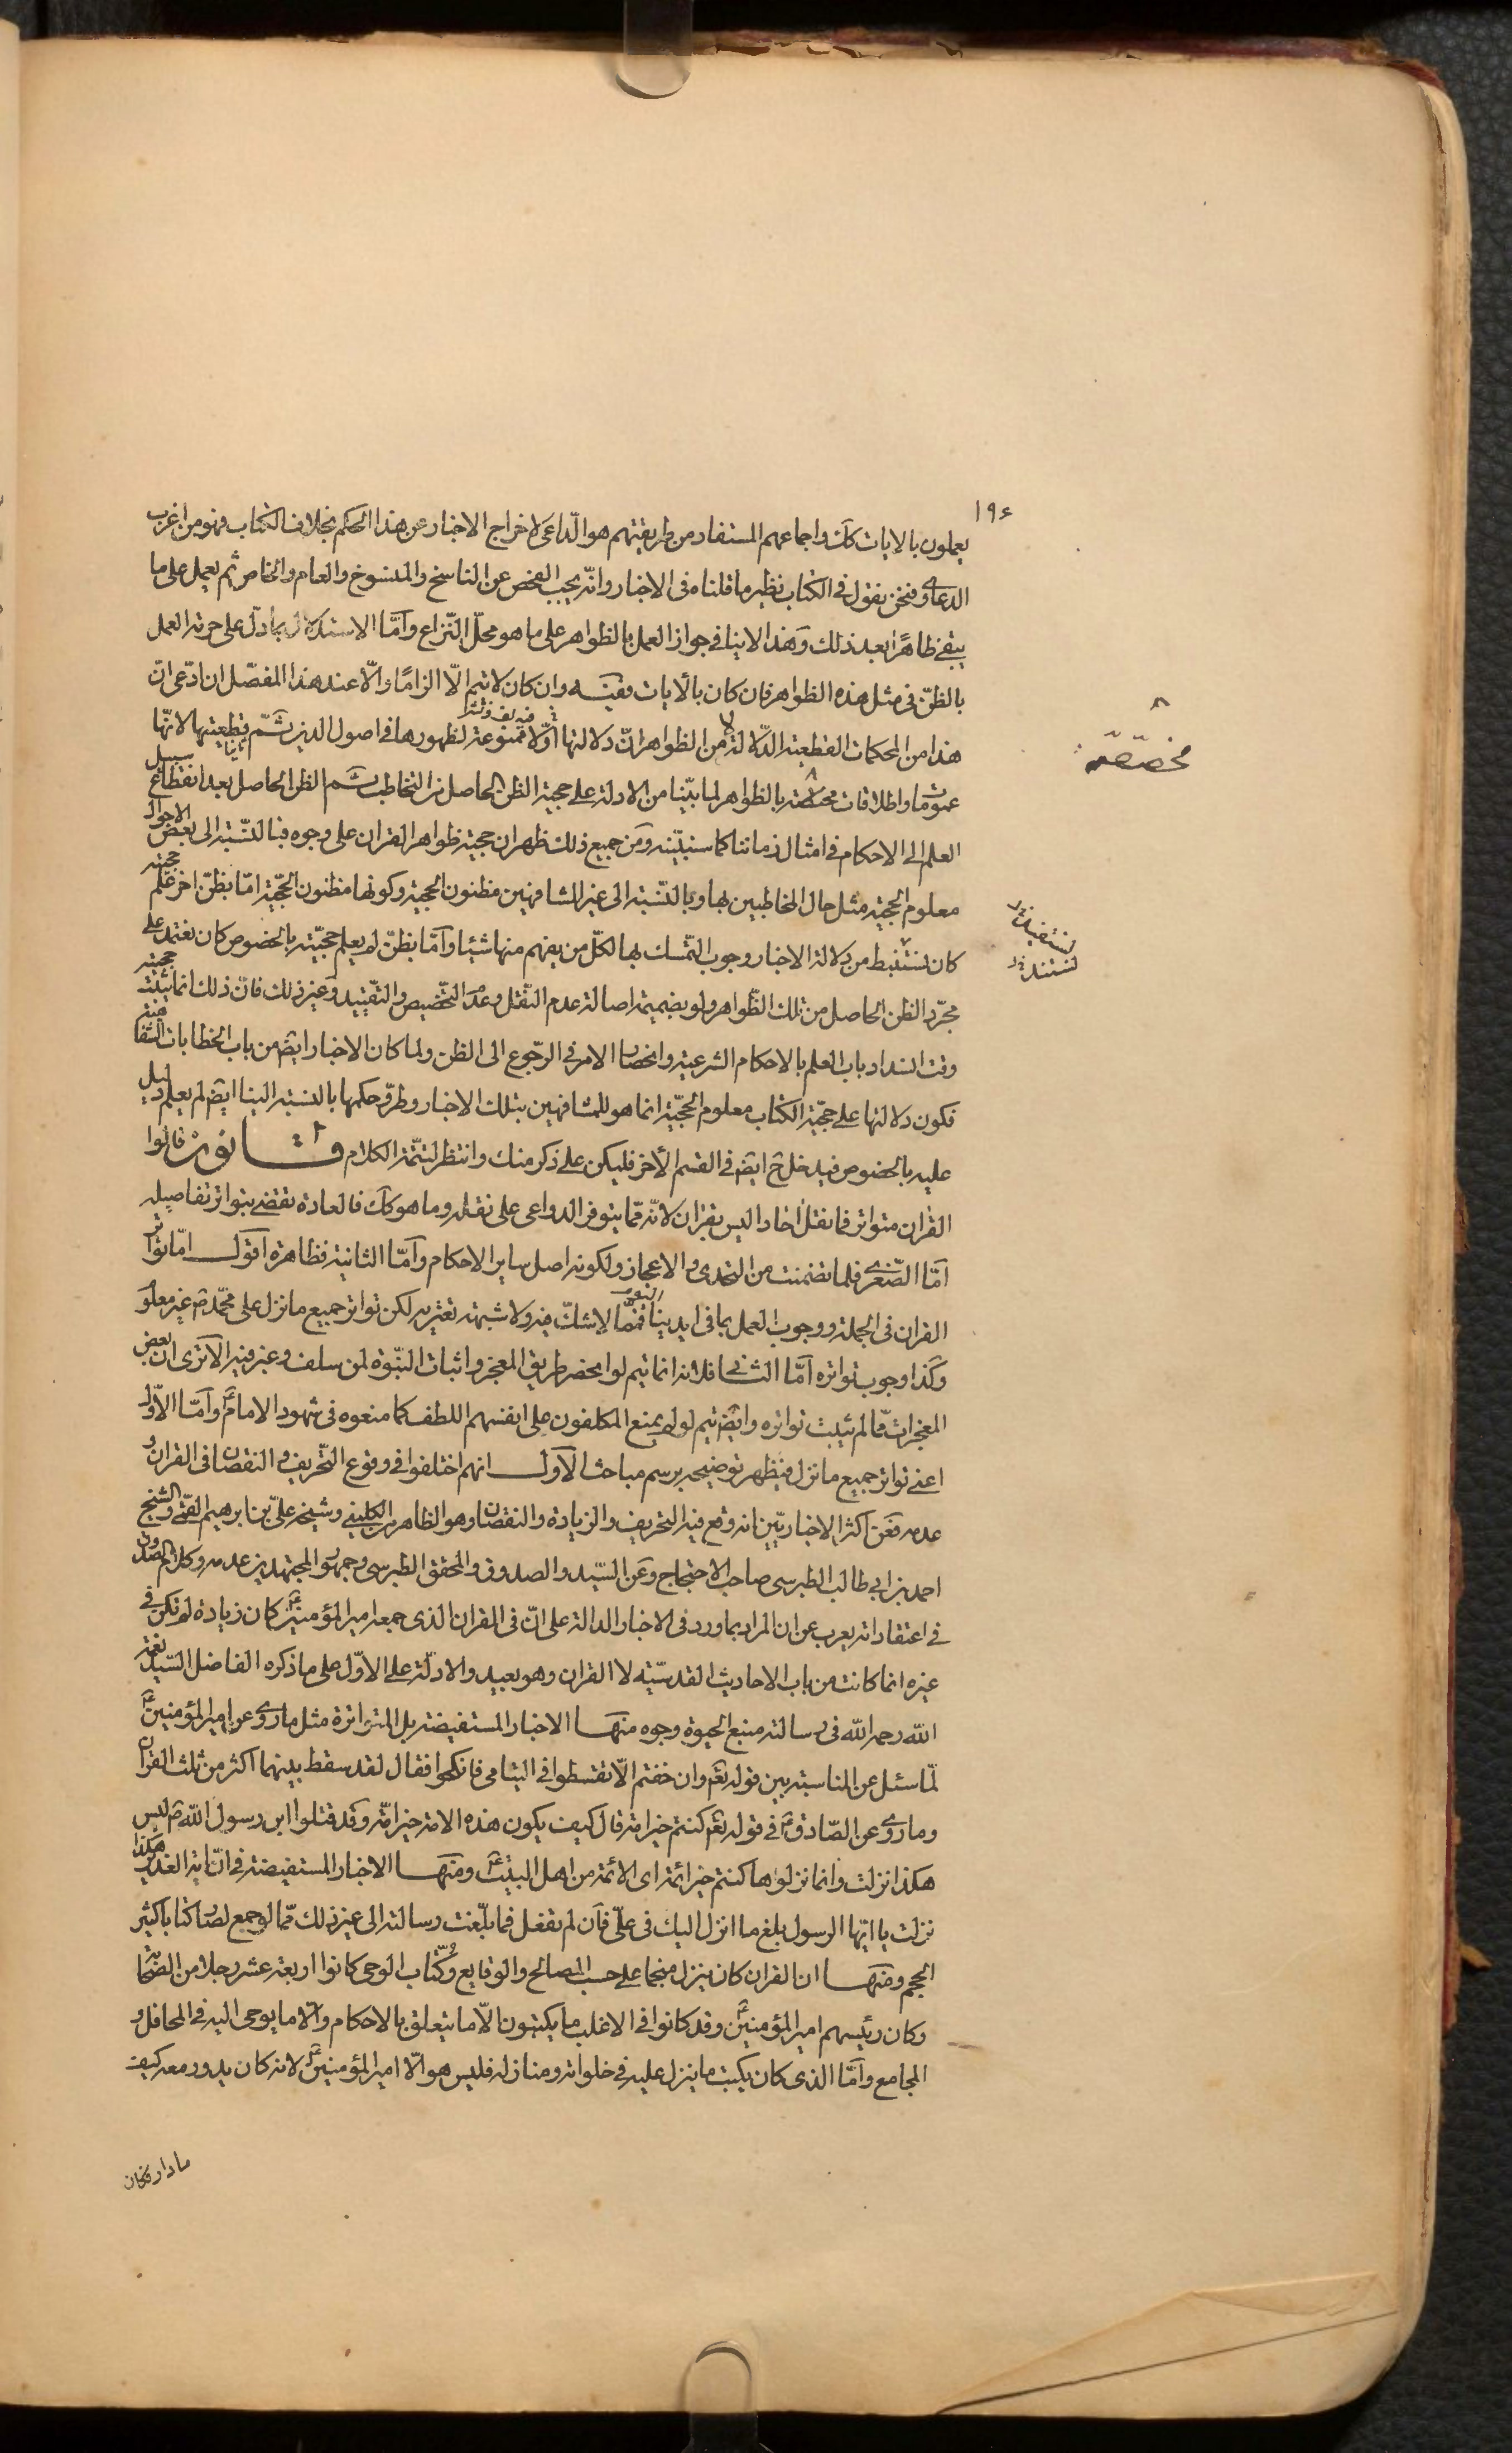 ١٩٤
يعملون بالايات كك واجماعهم المستفاد من طريقتهم هو الداعى لاخراج الاخبار عن هذا الحكم بخلاف الكتاب فهو من اغرب
الدعاوى فنحن نقول فى الكتاب نظير ما قلناه فى الاخبار وانّه يجب الفحص عن الناسخ والمنسوخ والعام والخاص ثم يعمل على ما
يبقى ظاهرًا بعد ذلك وهذا لا ينافى جواز العمل بالظواهر على ما هو محلّ النّزاع وامّا الاستدلال بما دلّ على حرمة العمل
بالظنّ فى مثل هذه الظواهر فان كان بالايات ففيه وان كان لا يتم الّا الزامًا والّا عند هذا المفصّل ان ادّعى ان
هذا من المحكمات القطعية الدّلالة لا من الظواهر انّ دلالتها اوّلا ممنوعة لظهورها فى اصول الدين ثمّ قطعيتها لانّها
ثانيا
عمومات واطلاقات مختصة بالظواهر لما بيّنا من الادلة على حجية الظن الحاصل من التخاطب ثم الظن الحاصل بعد انقطاع سبيل
مخصّصة
العلم الى الاحكام فى امثال زماننا كما سنبيّنه ومن جميع ذلك ظهر ان حجية ظواهر القران على وجوه فبالنسبة الى بعض الاحوال
معلوم الحجية مثل حال المخاطبين بها وبالنّسبة الى غير المشافهين مظنون الحجية وكونها مظنون الحجّية امّا بظنّ اخر علم حجيته
كان نستنبط من دلالة الاخبار وجوب التّمسك بها لكلّ من يفهم منها شيئا وامّا بظنّ لم يعلم حجيّته بالخصوص كان نعتمد على
نستفيد
نستند
مجرّد الظن الحاصل من تلك الظّواهر ولو بضميمة اصالة عدم النّقل وعدم التّخصيص والتّقييد وغير ذلك فانّ ذلك انما يثبت حجيته
وقت انسداد باب العلم بالاحكام الشرعية وانحصار الامر فى الرجوع الى الظن ولما كان الاخبار ايض من باب الخطابات الشفاهية
فكون دلالتها على حجّية الكتاب معلوم الحجيّة انما هو للمشافهين بتلك الاخبار وطرو حكمها بالنسبة الينا ايض لم يعلم دليل
عليه بالخصوص فيدخل ح ايض فى القسم الاخر فليكن على ذكر منك وانتظر لتتمّة الكلام قانون قالوا
القران متواتر فما نقل اخادا ليس بقران لانّه ممّا يتوفر الدواعى على نقله وما هو كك فالعادة تقضى بتواتر تفاصيله
امّا الصّغرى فلما تضمنت من التحدى والاعجاز ولكونه اصل ساير الاحكام وامّا الثانية فظاهرة اقول امّا تواتر
القران فى الجملة ووجوب العمل بما فى ايدينا اليوم فممّا لا شكّ فيه ولا شبهة تعتريه لكن تواتر جميع ما نزل على محمّد ص غير معلوم
وكذا وجوب تواتره امّا الثانى فلانه انما يتم لو انحصر طريق المعجز واثبات النبّوة لمن سلف وغبر فيه الا ترى ان بعض
المعجزات ممّا لم يثبت تواتره وايض يتم لو لم يمنع المكلفون على انفسهم اللطف كما منعوه فى شهود الامام ع وامّا الاوّل
اعنى تواتر جميع ما نزل فيظهر توضيحه برسم مباحث الاول انهم اختلفوا فى وقوع التّحريف والنقصان فى القران و
عدمه فعن اكثر الاخباريّين انه وقع فيه التحريف والزيادة والنقصان وهو الظاهر من الكلينى وشيخه علىّ بن ابرهيم القمّى والشيخ
احمد بن ابى طالب الطبرسى صاحب الاحتجاج وعن السّيد والصدوق والمحقق الطبرسى وجمهور المجتهدين عدمه وكلام الصدوق
فى اعتقاداته يعرب عن ان المراد بما ورد فى الاخبار الدالة على انّ فى القران الذى جمعه امير المؤمنين ع كان زيادة لم تكن فى
غيره انما كانت من باب الاحاديث القدسيّة لا القران وهو بعيد والادلّة على الاوّل على ما ذكره الفاضل السّيد نعمة
الله رحمه الله فى رسالته منبع الحيوة وجوه منها الاخبار المستفيضة بل المتواترة مثل ما روى عن امير المؤمنين ع
لمّا سئل عن المناسبة بين قوله تع وان خفتم الّا تقسطوا فى اليتامى فانكحوا فقال لقد سقط بينهما اكثر من ثلث القران
وما روى عن الصّادق ع فى قوله تع كنتم خير امة قال كيف يكون هذه الامة خير امّة وقد قتلوا ابن رسول الله ص ليس
هكذا نزلت وانما نزلوها كنتم خير ائمة اى الائمة من اهل البيت ع ومنها الاخبار المستفيضة فى انّ اية الغدير هكذا
نزلت يا ايّها الرسول بلغ ما انزل اليك فى علىّ فان لم تفعل فما بلّغت رسالته الى غير ذلك ممّا لو جمع لصار كتابا كثير
الحجم ومنها ان القران كان ينزل منجما على حسب المصالح والوقايع وكتّاب الوحى كانوا اربعة عشر رجلا من الصّحابة
وكان رئيسهم امير المؤمنين ع وقد كانوا فى الاغلب ما يكتبون الّا ما يتعلق بالاحكام والّا ما يوحى اليه فى المحافل و
المجامع وامّا الذى كان يكتب ما ينزل عليه فى خلواته ومنازله فليس هو الّا امير المؤمنين ع لانه كان يدور معه كيف
ما دار فكان